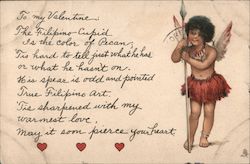 To my Valentine
The Filipino Cupid
Is the color of Pecan,
Tis hard to tell just what he has
or what he hasn't on.
His spear is odd and pointed
True Filipino Art,
Tis sharpened with my
warmest love,
May it soon pierce your heart